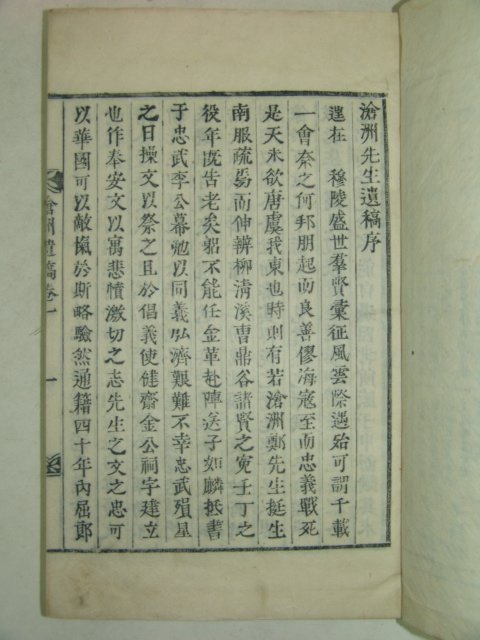 滄洲先生遺稿序
粤在 穆陵盛世羣賢彙征風雲際遇殆可謂千載
一會奈之何邦朋起而良善僇海寇至而忠義戰死
是天未欲唐虞我東也時則有若滄洲鄭先生挺生
南服疏蕩而伸辨柳淸溪曹鼎谷諸賢之寃壬丁之
役年旣告老矣躬不能任金革赴陣送子如麟抵書
于忠武李公幕勉以同義弘濟艱難不幸忠武殞星
之日操文以祭之且於倡義使健齋金公祠宇建立
也作奉安文以寓悲憤激切之志先生之文之忠可
以華國可以敵愾於斯略驗然通籍四十年內屈郞
滄洲遺稿卷一
一